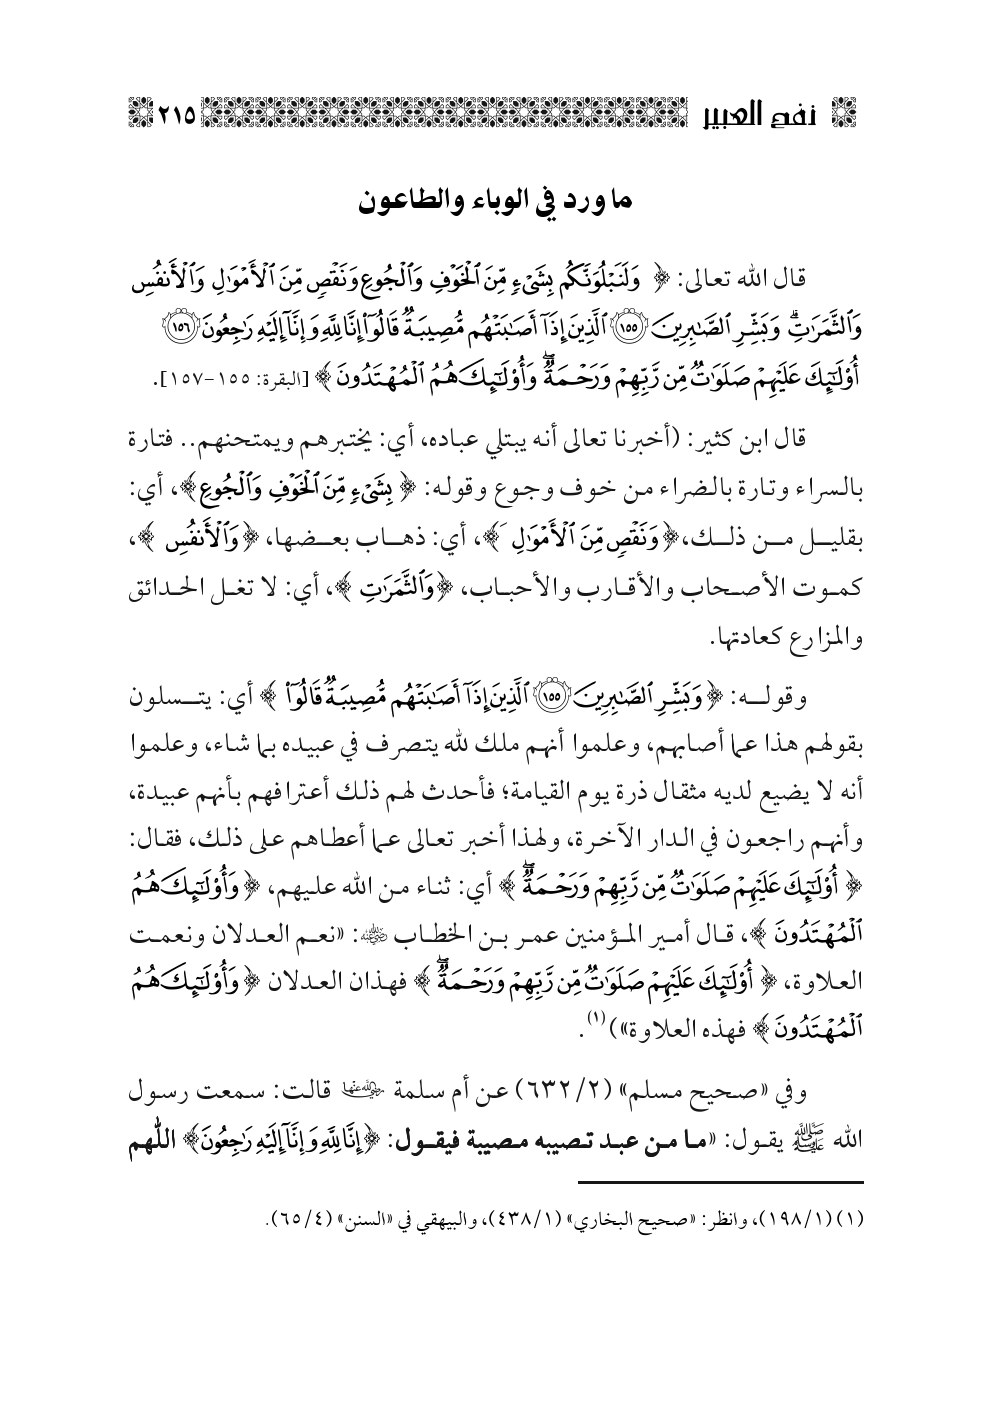 نفح العبير ٢١٥
ما ورد في الوباء والطاعون
قال الله تعالى: ﴿ وَلَنَبْلُوَنَّكُم بِشَيْءٍ مِّنَ ٱلْخَوْفِ وَٱلْجُوعِ وَنَقْصٍ مِّنَ ٱلْأَمْوَٰلِ وَٱلْأَنفُسِ
وَٱلثَّمَرَٰتِ ۗ وَبَشِّرِ ٱلصَّٰبِرِينَ ١٥٥ ٱلَّذِينَ إِذَآ أَصَٰبَتْهُم مُّصِيبَةٌ قَالُوٓا۟ إِنَّا لِلَّهِ وَإِنَّآ إِلَيْهِ رَٰجِعُونَ ١٥٦
أُو۟لَٰٓئِكَ عَلَيْهِمْ صَلَوَٰتٌ مِّن رَّبِّهِمْ وَرَحْمَةٌ ۖ وَأُو۟لَٰٓئِكَ هُمُ ٱلْمُهْتَدُونَ ﴾ [البقرة: ١٥٥-١٥٧].
قال ابن كثير: (أخبرنا تعالى أنه يبتلي عباده، أي: يختبرهم ويمتحنهم.. فتارة
بالسراء وتارة بالضراء من خوف وجوع وقوله: ﴿ بِشَيْءٍ مِّنَ ٱلْخَوْفِ وَٱلْجُوعِ ﴾، أي:
بقليل من ذلك، ﴿ وَنَقْصٍ مِّنَ ٱلْأَمْوَٰلِ َ ﴾، أي: ذهاب بعضها، ﴿ وَٱلْأَنفُسِ ﴾،
كموت الأصحاب والأقارب والأحباب، ﴿ وَٱلثَّمَرَٰتِ ﴾، أي: لا تغل الحدائق
والمزارع كعادتها.
وقوله: ﴿ وَبَشِّرِ ٱلصَّٰبِرِينَ ١٥٥ ٱلَّذِينَ إِذَآ أَصَٰبَتْهُم مُّصِيبَةٌ قَالُوٓا۟ ﴾ أي: يتسلون
بقولهم هذا عما أصابهم، وعلموا أنهم ملك لله يتصرف في عبيده بما شاء، وعلموا
أنه لا يضيع لديه مثقال ذرة يوم القيامة؛ فأحدث لهم ذلك أعترافهم بأنهم عبيدة،
وأنهم راجعون في الدار الآخرة، ولهذا أخبر تعالى عما أعطاهم على ذلك، فقال:
﴿ أُو۟لَٰٓئِكَ عَلَيْهِمْ صَلَوَٰتٌ مِّن رَّبِّهِمْ وَرَحْمَةٌ ۖ ﴾ أي: ثناء من الله عليهم، ﴿ وَأُو۟لَٰٓئِكَ هُمُ
ٱلْمُهْتَدُونَ ﴾، قال أمير المؤمنين عمر بن الخطاب رضي الله عنه: «نعم العدلان ونعمت
العلاوة، ﴿ أُو۟لَٰٓئِكَ عَلَيْهِمْ صَلَوَٰتٌ مِّن رَّبِّهِمْ وَرَحْمَةٌ ۖ ﴾ فهذان العدلان ﴿ وَأُو۟لَٰٓئِكَ هُمُ
ٱلْمُهْتَدُونَ ﴾ فهذه العلاوة»)(١).
وفي «صحيح مسلم» (٦٣٢/٢) عن أم سلمة رضي الله عنها قالت: سمعت رسول
الله ﷺ يقول: «ما من عبد تصيبه مصيبة فيقول: ﴿ إِنَّا لِلَّهِ وَإِنَّآ إِلَيْهِ رَٰجِعُونَ ﴾ اللّهم
(١) (١٩٨/١)، وانظر: «صحيح البخاري» (٤٣٨/١)، والبيهقي في «السنن» (٦٥/٤).